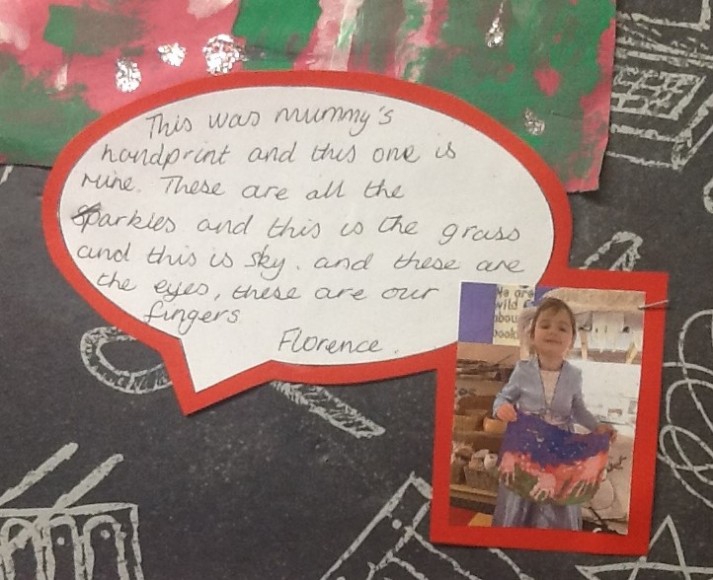 This was mummy's
handprint and this one is
mine. These are all the
sparkles and this is the grass
and this is sky. and these are
the eyes, these are our
fingers
Florence.
We are
wild
abou
book